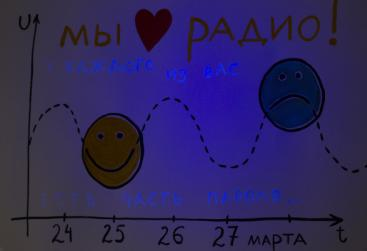 U
мы ❤ РАДИО!
У КАЖДОГО ИЗ ВАС
ЕСТЬ ЧАСТЬ ПАРОЛЯ...
24 25 26 27 МАРТА t